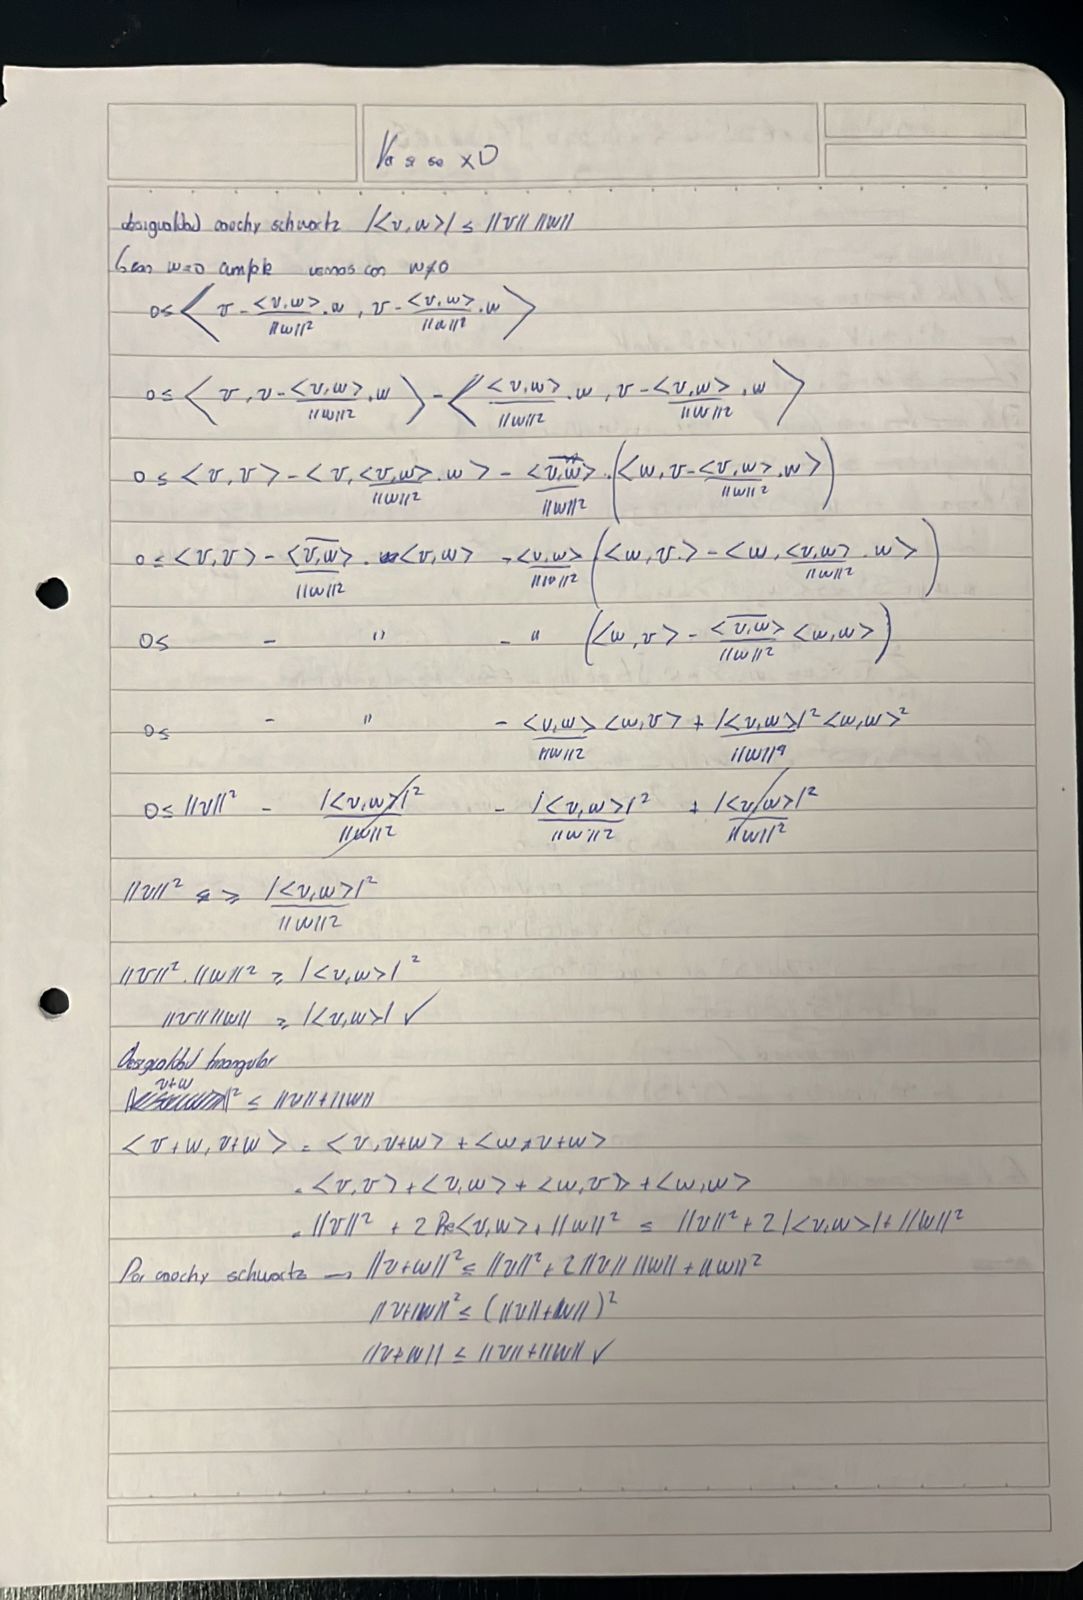 xD
desigualdad cauchy schwartz |<v,w>| ≤ ||v|| ||w||
w=0 cumple veamos con w≠0
0≤ < v - <v,w>/||w||² . w , v - <v,w>/||w||² . w >
0≤ < v, v - <v,w>/||w||² . w > - < <v,w>/||w||² . w , v - <v,w>/||w||² . w >
0≤ <v,v> - <v, <v,w>/||w||² . w> - <v,w>/||w||² . (<w, v - <v,w>/||w||² . w>)
0≤ <v,v> - <v,w>̅/||w||² . <v,w> - <v,w>/||w||² (<w,v> - <w, <v,w>/||w||² . w>)
0≤ - " - " (<w,v> - <v,w>̅/||w||² <w,w>)
0≤ - " - <v,w>/||w||² <w,v> + |<v,w>|²/||w||⁴ <w,w>²
0≤ ||v||² - |<v,w>|²/||w||² - |<v,w>|²/||w||² + |<v,w>|²/||w||²
||v||² ≥ |<v,w>|²/||w||²
||v||² . ||w||² ≥ |<v,w>|²
||v|| ||w|| ≥ |<v,w>| ✓
Desigualdad triangular
v+w ||² ≤ ||v|| + ||w||
<v+w, v+w> = <v, v+w> + <w, v+w>
= <v,v> + <v,w> + <w,v> + <w,w>
= ||v||² + 2 Re<v,w> + ||w||² ≤ ||v||² + 2|<v,w>| + ||w||²
Por cauchy schwartz → ||v+w||² ≤ ||v||² + 2||v|| ||w|| + ||w||²
||v+w||² ≤ (||v|| + ||w||)²
||v+w|| ≤ ||v|| + ||w|| ✓